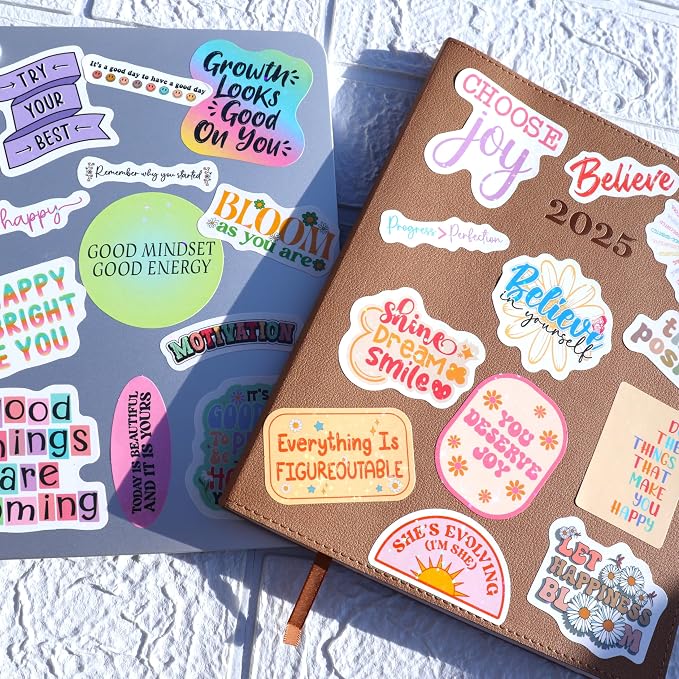 TRY
YOUR
BEST
It's a good day to have a good day
Growth
Looks
Good
On You
Remember why you started
happy
GOOD MINDSET
GOOD ENERGY
BLOOM
as you are
HAPPY
BRIGHT
E YOU
MOTIVATION
ood
hings
are
oming
TODAY IS BEAUTIFUL
AND IT IS YOURS
IT'S
GOO
TO
BE
HA
YOU
CHOOSE
joy
Believe
2025
Progress > Perfection
Believe
in yourself
Shine
DREAM
Smile
th
posit
Everything Is
FIGUREOUTABLE
YOU
DESERVE
JOY
D
THE
THINGS
THAT
MAKE YOU
HAPPY
SHE'S EVOLVING
(I'M SHE)
LET
HAPPINESS
BLOOM